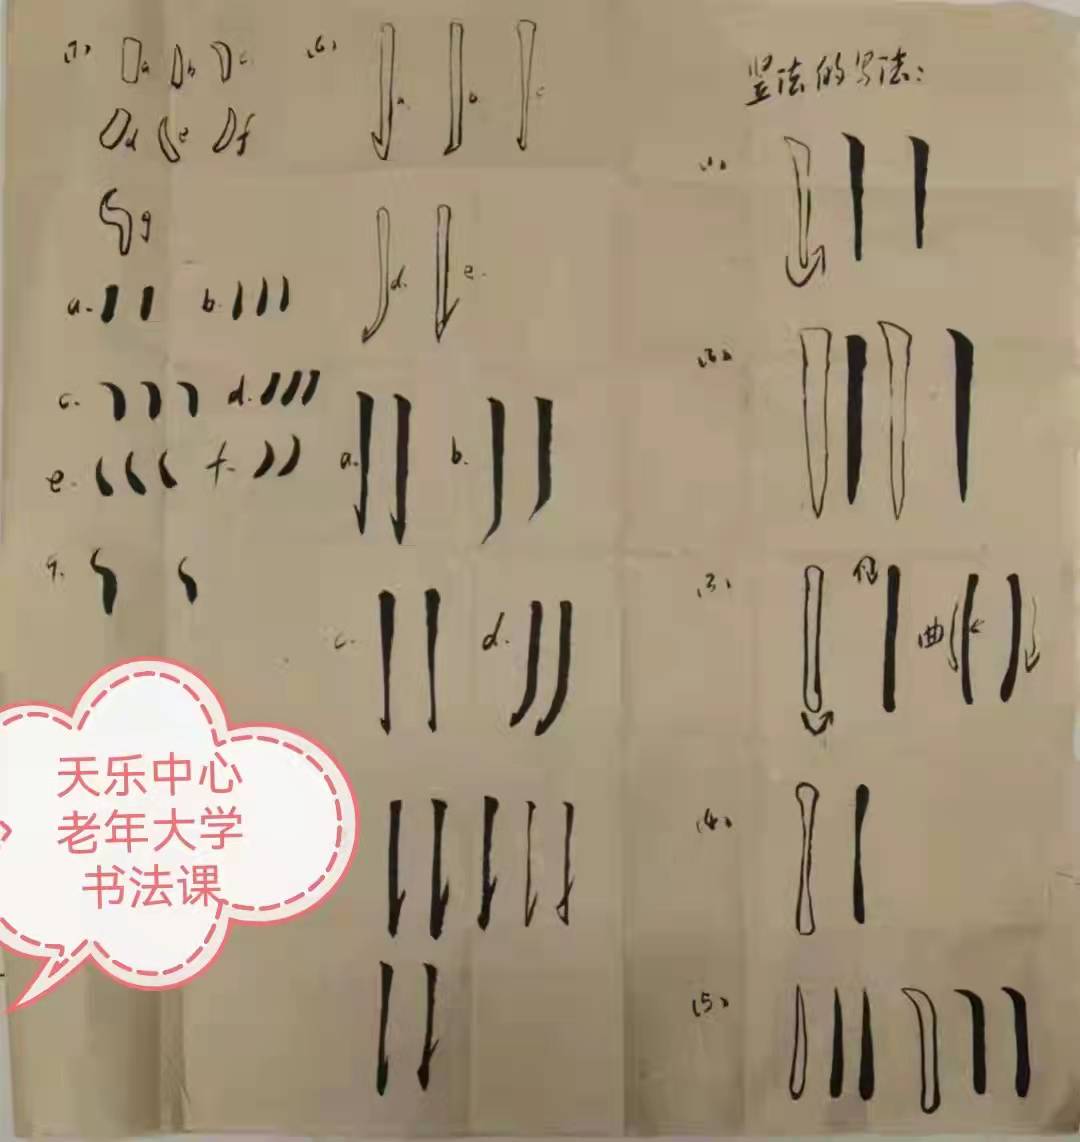 竖法的写法:
(1)
(2)
(3)
伹
曲
(4)
(5)
(6)
a.
b.
c.
d.
e.
a.
b.
c.
d.
(7)
a
b
c.
d
e
f
g
a.
b.
c.
d.
e.
f.
g.
天乐中心
老年大学
书法课